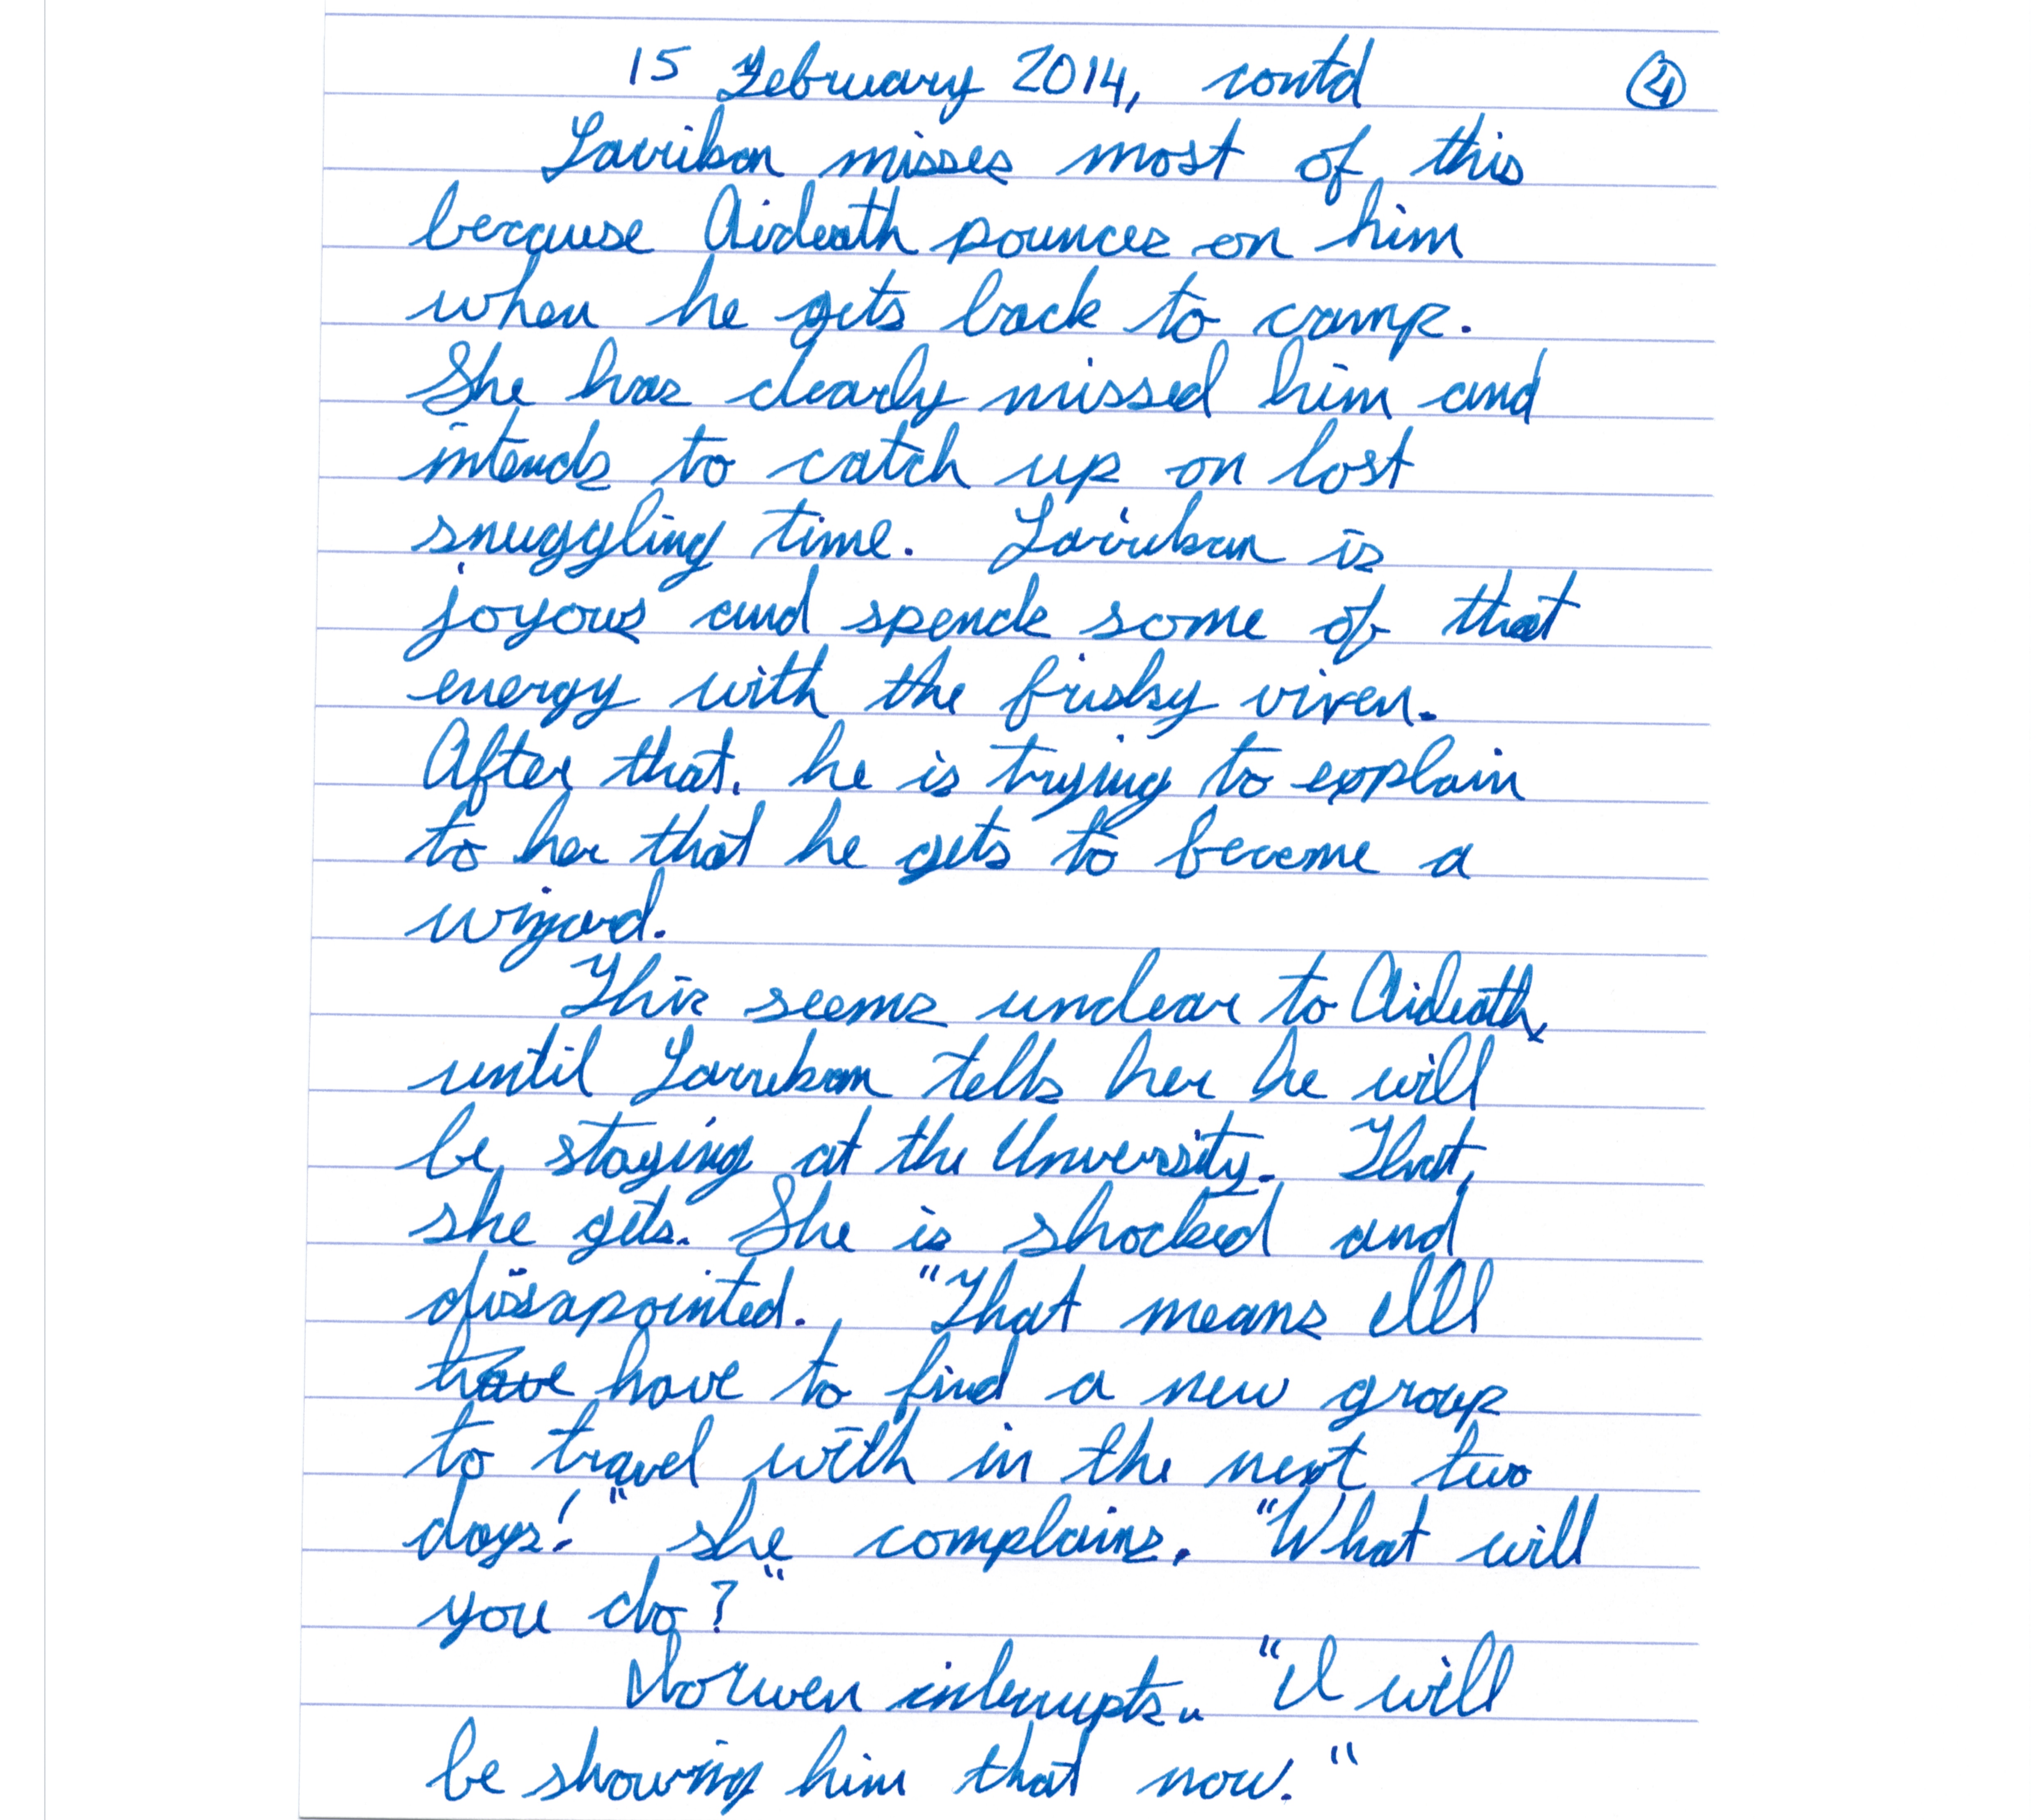 15 February 2014, contd ④
Lauriban misses most of this
because Aideath pounces on him
when he gets back to camp.
She has clearly missed him and
intends to catch up on lost
snuggling time. Lauriban is
joyous and spends some of that
energy with the frisky vixen.
After that, he is trying to explain
to her that he gets to become a
wizard.
This seems unclear to Aideath
until Lauriban tells her he will
be staying at the University. That,
she gets. She is shocked and
dissapointed. "That means I'll
have have to find a new group
to travel with in the next two
days!" she complains. "What will
you do?"
Norwen interrupts. "I will
be showing him that now."